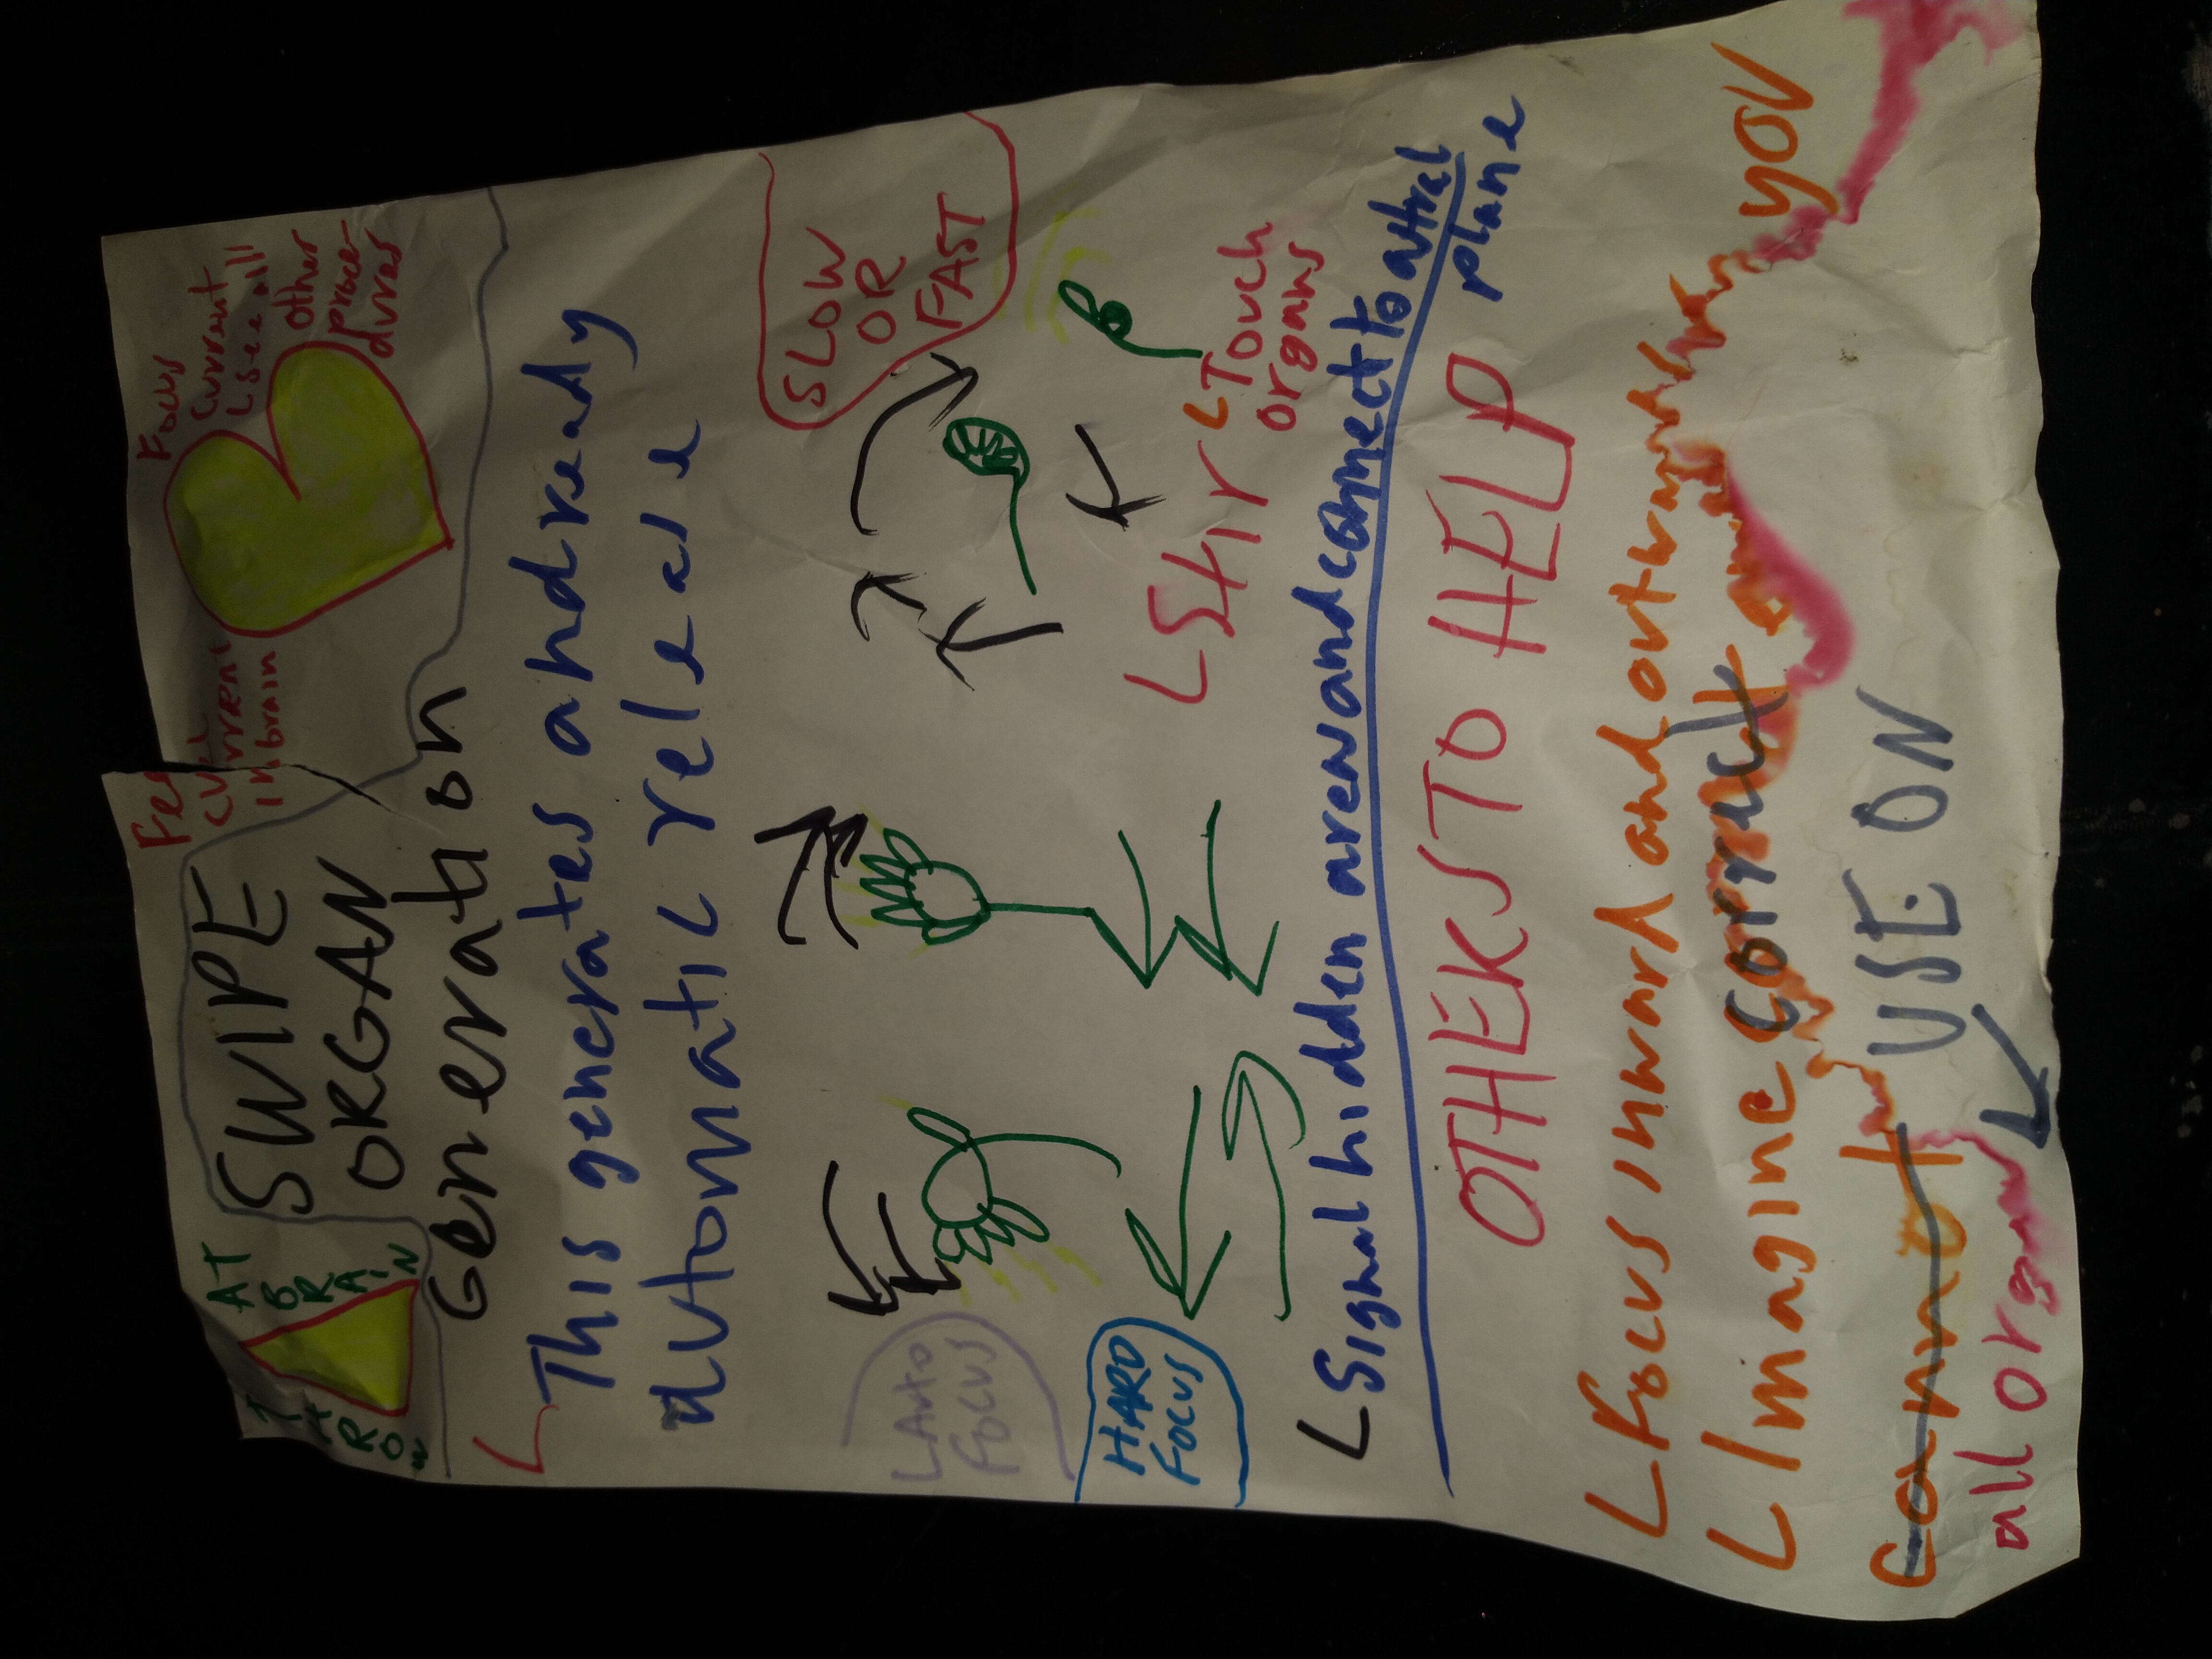 THROW
AT BRAIN
SWIPE
ORGAN
Generation
current
in brain
Focus
current
L see all
other
proce-
dures
L This generates and ready
automatic release
SLOW
OR
FAST
L Auto
Focus
HARD
FOCUS
L Stir
L Touch
organs
L Signal hidden areas and connect to astral
plane
OTHERS TO HELP
L Focus inward and outward you
L Imagine correct
cannot USE ON
all organ